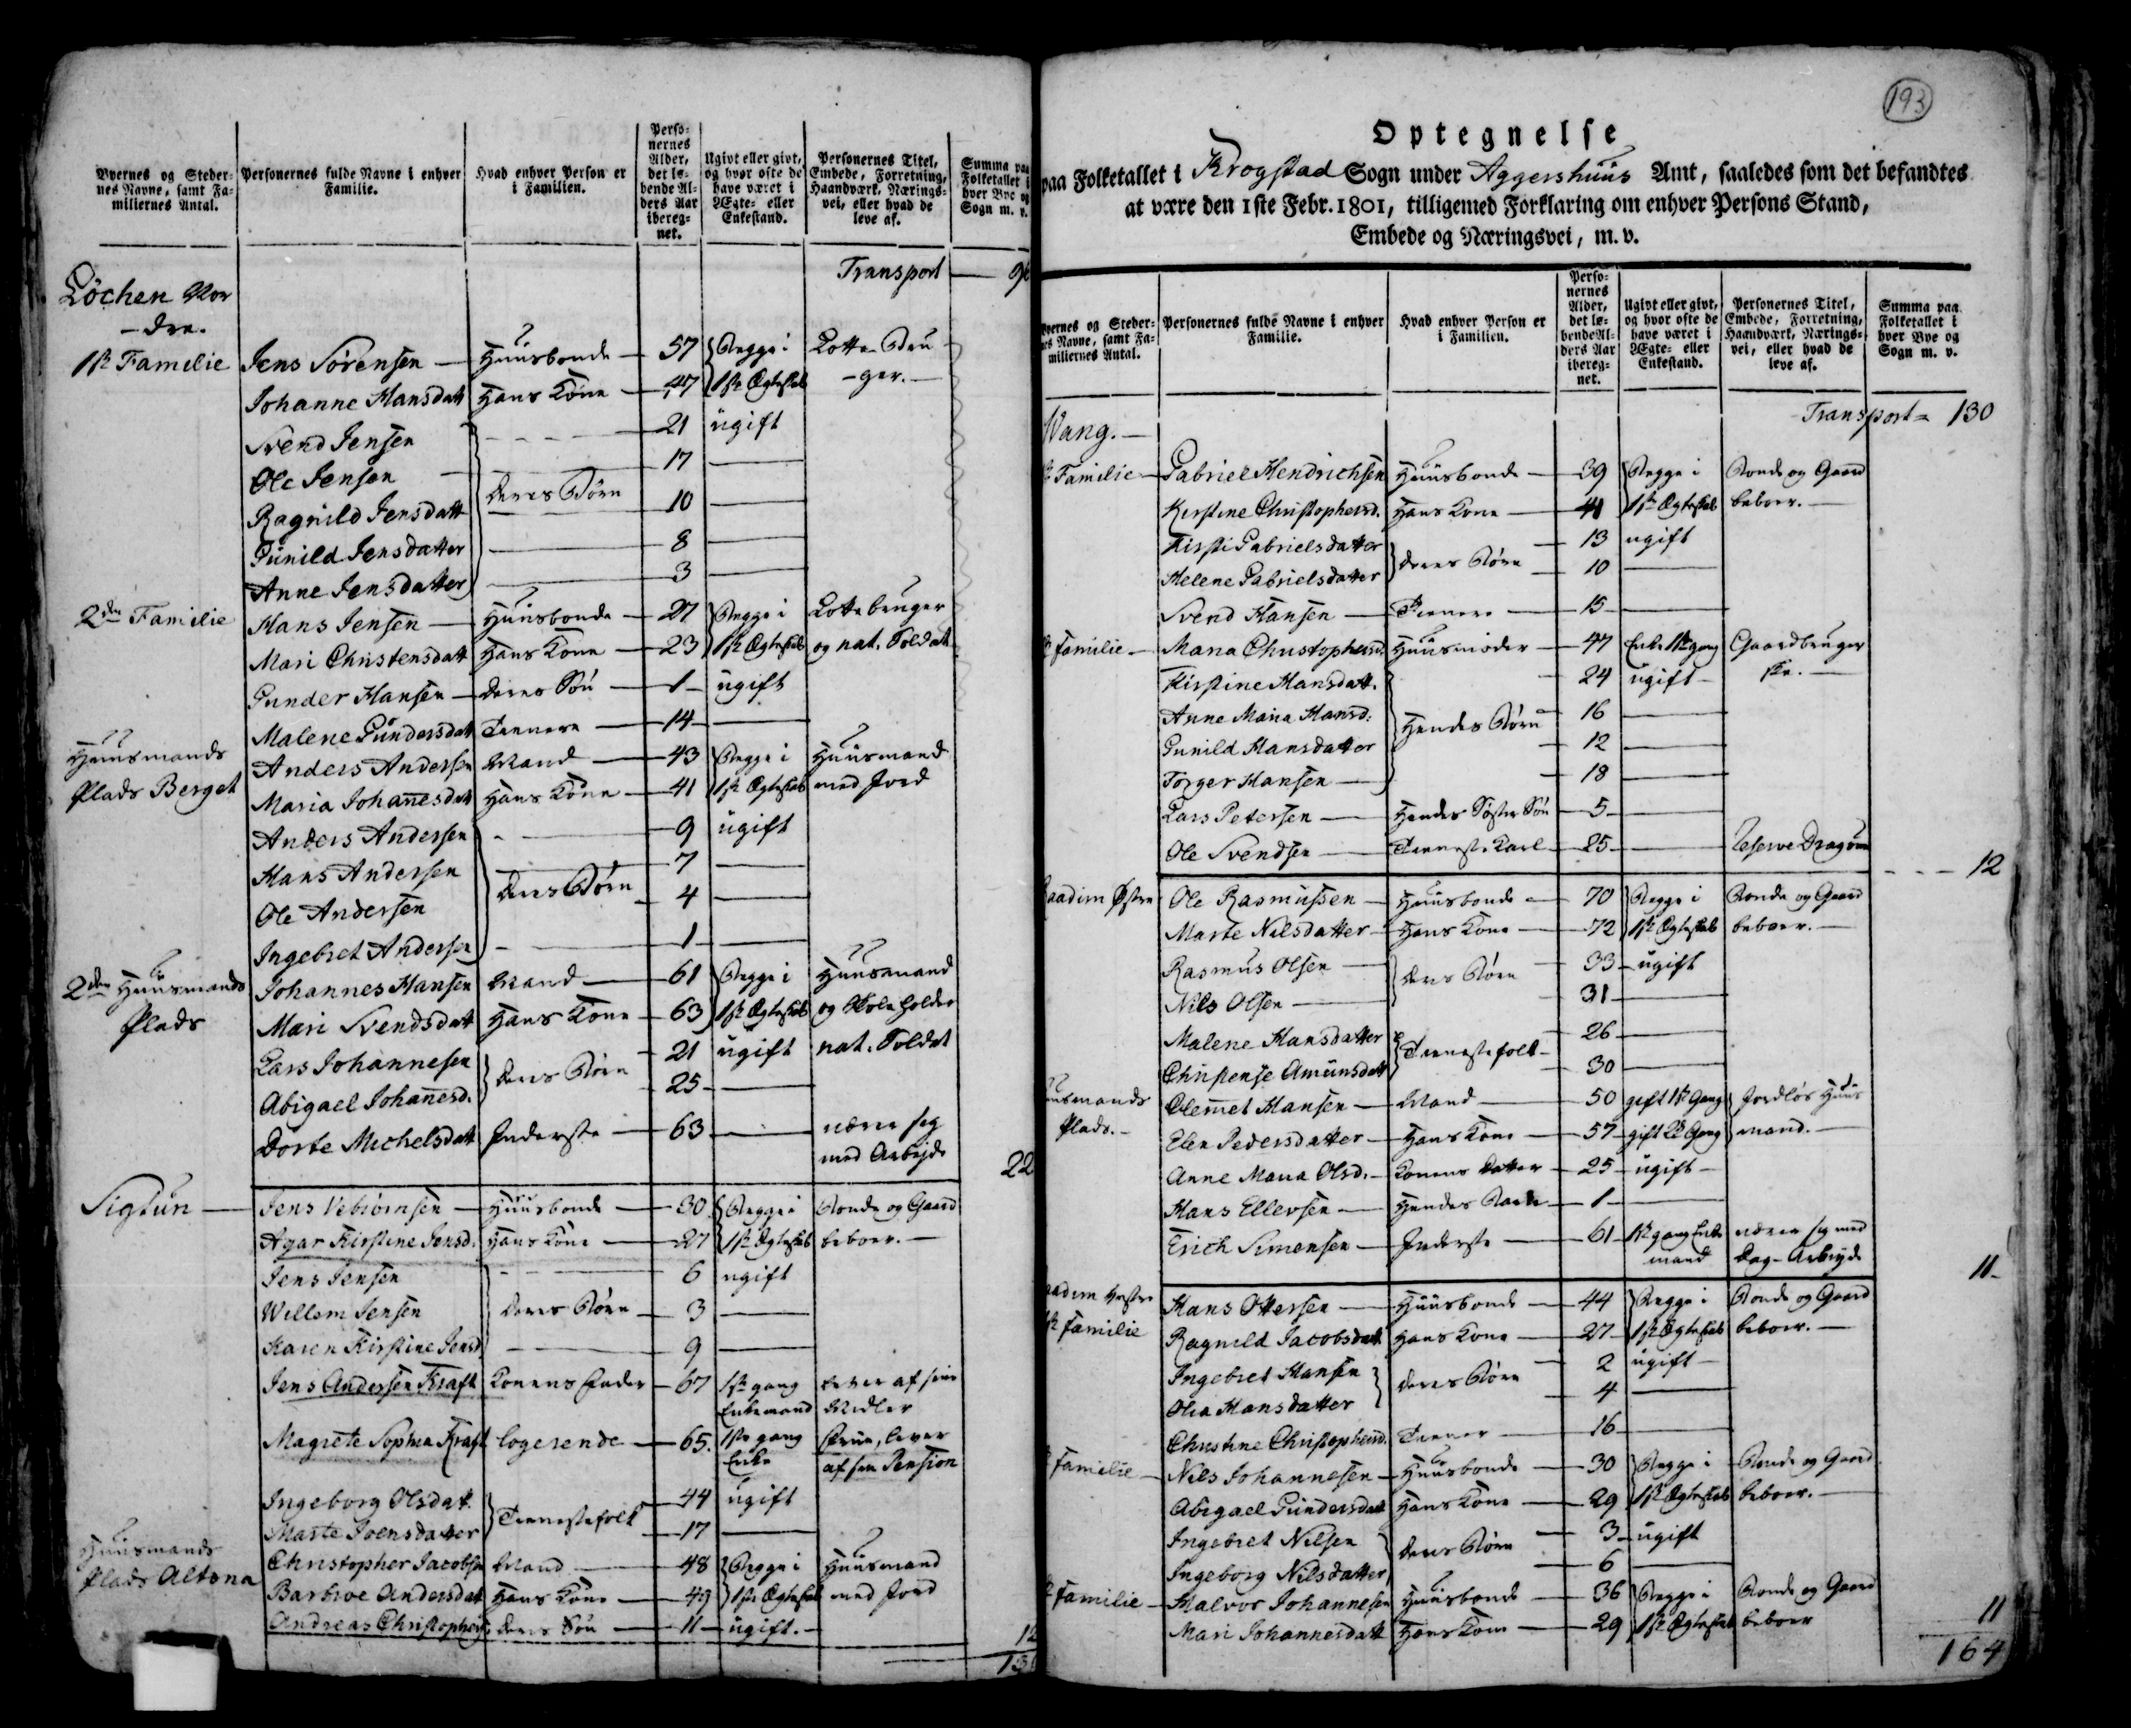 Byernes og Steder-
nes Navne, samt Fa-
miliernes Antal.
Personernes fulde Navne i enhver
Familie.
Hvad enhver Person er
i Familien.
Perso-
nernes
Alder,
det lø-
bende Al-
ders Aar
ibereg-
net.
Ugivt eller givt,
og hvor ofte de
have været i
Ægte- eller
Enkestand.
Personernes Titel,
Embede, Forretning,
Haandværk, Nærings-
vei, eller hvad de
leve af.
Summa paa
Folketallet i
hver Bye og
Sogn m. v.
Transport
Löchen Nor
-dre.
1ste Familie Jens Sörensen Huusbonde 57 Begge i Lotte Bru
Johanne Hansdatt Hans Kone 47 1ste Ægteskab -ger.
Svend Jensen 21 ugift
Ole Jensen 17
Ragnild Jensdatt Deres Børn 10
Gunild Jensdatter 8
Anne Jensdatter 3
2den Familie Hans Jensen Huusbonde 27 Begge i Lottebruger
Mari Christensdatt Hans Kone 23 1ste Ægteskab og nat. Soldat
Gunder Hansen deres Sön 1 ugift
Malene Gundersdatt Tienere 14
Huusmands Anders Andersen Mand 43 Begge i Huusmand
Plads Berget Maria Johannesdatt Hans Kone 41 1ste Ægteskab med Jord
Anders Andersen 9 ugift
Hans Andersen 7
Ole Andersen Deres Børn 4
Ingebret Andersen 1
2den Huusmands Johannes Hansen Mand 61 Begge i Huusmand
Plads Mari Svendsdatt Hans Kone 63 1ste Ægteskab og Skoleholder
Lars Johannesen Deres Børn 21 ugift nat. Soldat
Abigael Johannesd. 25
Dorte Michelsdatt Inderste 63 nærer sig
med Arbejde 22
Sigtun Jens Vebiörnsen Huusbonde 30 Begge i Bonde og Gaard
Agar Kirstine Jensd. Hans Kone 27 1ste Ægteskab beboer.
Jens Jensen 6 ugift
Willem Jensen Deres Børn 3
Karen Kirstine Jensd 9
Jens Andersen Kraft Konens Fader 67 1ste gang lever af sine
Enkemand Midler
Magrete Sophia Kraft logerende 65. 1ste gang Frue, lever
Enke af sin Pension
Ingeborg Olsdatt. Tienestefolk 44 ugift
Marte Joensdatter 17
Huusmands Christopher Jacobsen Mand 48 Begge i Huusmand
Plads Altona Barbroe Andersdatt Hans Kone 49 1ste Ægteskab med Jord
Andreas Christophers. deres Sön 11 ugift.
193
Optegnelse
paa Folketallet i Krogstad Sogn under Aggershuus Amt, saaledes som det befandtes
at være den 1ste Febr. 1801, tilligemed Forklaring om enhver Persons Stand,
Embede og Næringsvei, m. v.
Byernes og Steder-
nes Navne, samt Fa-
miliernes Antal.
Personernes fulde Navne i enhver
Familie.
Hvad enhver Person er
i Familien.
Perso-
nernes
Alder,
det lø-
bende Al-
ders Aar
ibereg-
net.
Ugivt eller givt,
og hvor ofte de
have været i
Ægte- eller
Enkestand.
Personernes Titel,
Embede, Forretning,
Haandværk, Nærings-
vei, eller hvad de
leve af.
Summa paa
Folketallet i
hver Bye og
Sogn m. v.
Transport 130
Wang.
Familie Gabriel Hendrichsen Huusbonde 39 Begge i Bonde og Gaard
Kirstine Christophersd. Hans Kone 41 1ste Ægteskab beboer.
Kirsti Gabrielsdatter deres Børn 13 ugift
Helene Gabrielsdatter 10
Svend Hansen Tienere 15
Familie Maria Christophersd. Huusmoder 47 Enke 1ste gang Gaardbruger
Kirstine Hansdatt. 24 ugift ske.
Anne Maria Hansd: Hendes Børn 16
Gunild Hansdatter 12
Torger Hansen 18
Lars Petersen Hendes Søster Sön 5
Ole Svendsen Tieneste Karl 25 Reserve Dragon
12
Raadim Østre Ole Rasmussen Huusbonde 70 Begge i Bonde og Gaard
Marte Nilsdatter Hans Kone 72 1ste Ægteskab beboer.
Rasmus Olsen Deres Børn 33 ugift
Nils Olsen 31
Malene Hansdatter Tienestefolk 26
Christense Amunsdatt 30
Huusmands Clemmet Hansen Mand 50 gift 1ste Gang Jordløs Huus
Plads. Elen Pedersdatter Hans Kone 57 gift 2de Gang mand.
Anne Maria Olsd. Konens Datter 25 ugift
Hans Ellevsen Hendes Barn 1
Erich Simensen Inderste 61 1ste gang Enke nærer sig med
mand Dag-Arbeyde 11
Raadim Vestre Hans Ottersen Huusbonde 44 Begge i Bonde og Gaard
Familie Ragnild Jacobsdatt Hans Kone 27 1ste Ægteskab beboer.
Ingebret Hansen deres Børn 2 ugift
Olia Hansdatter 4
Christine Christophersd. Tiener 16
Familie Nils Johannesen Huusbonde 30 Begge i Bonde og Gaard
Abigael Gundersdatt Hans Kone 29 1ste Ægteskab beboer.
Ingebret Nilsen deres Børn 3 ugift
Ingeborg Nilsdatter 6
Familie Halvor Johannesen Huusbonde 36 Begge i Bonde og Gaard
Mari Johannesdatt Hans Kone 29 1ste Ægteskab beboer 11
164